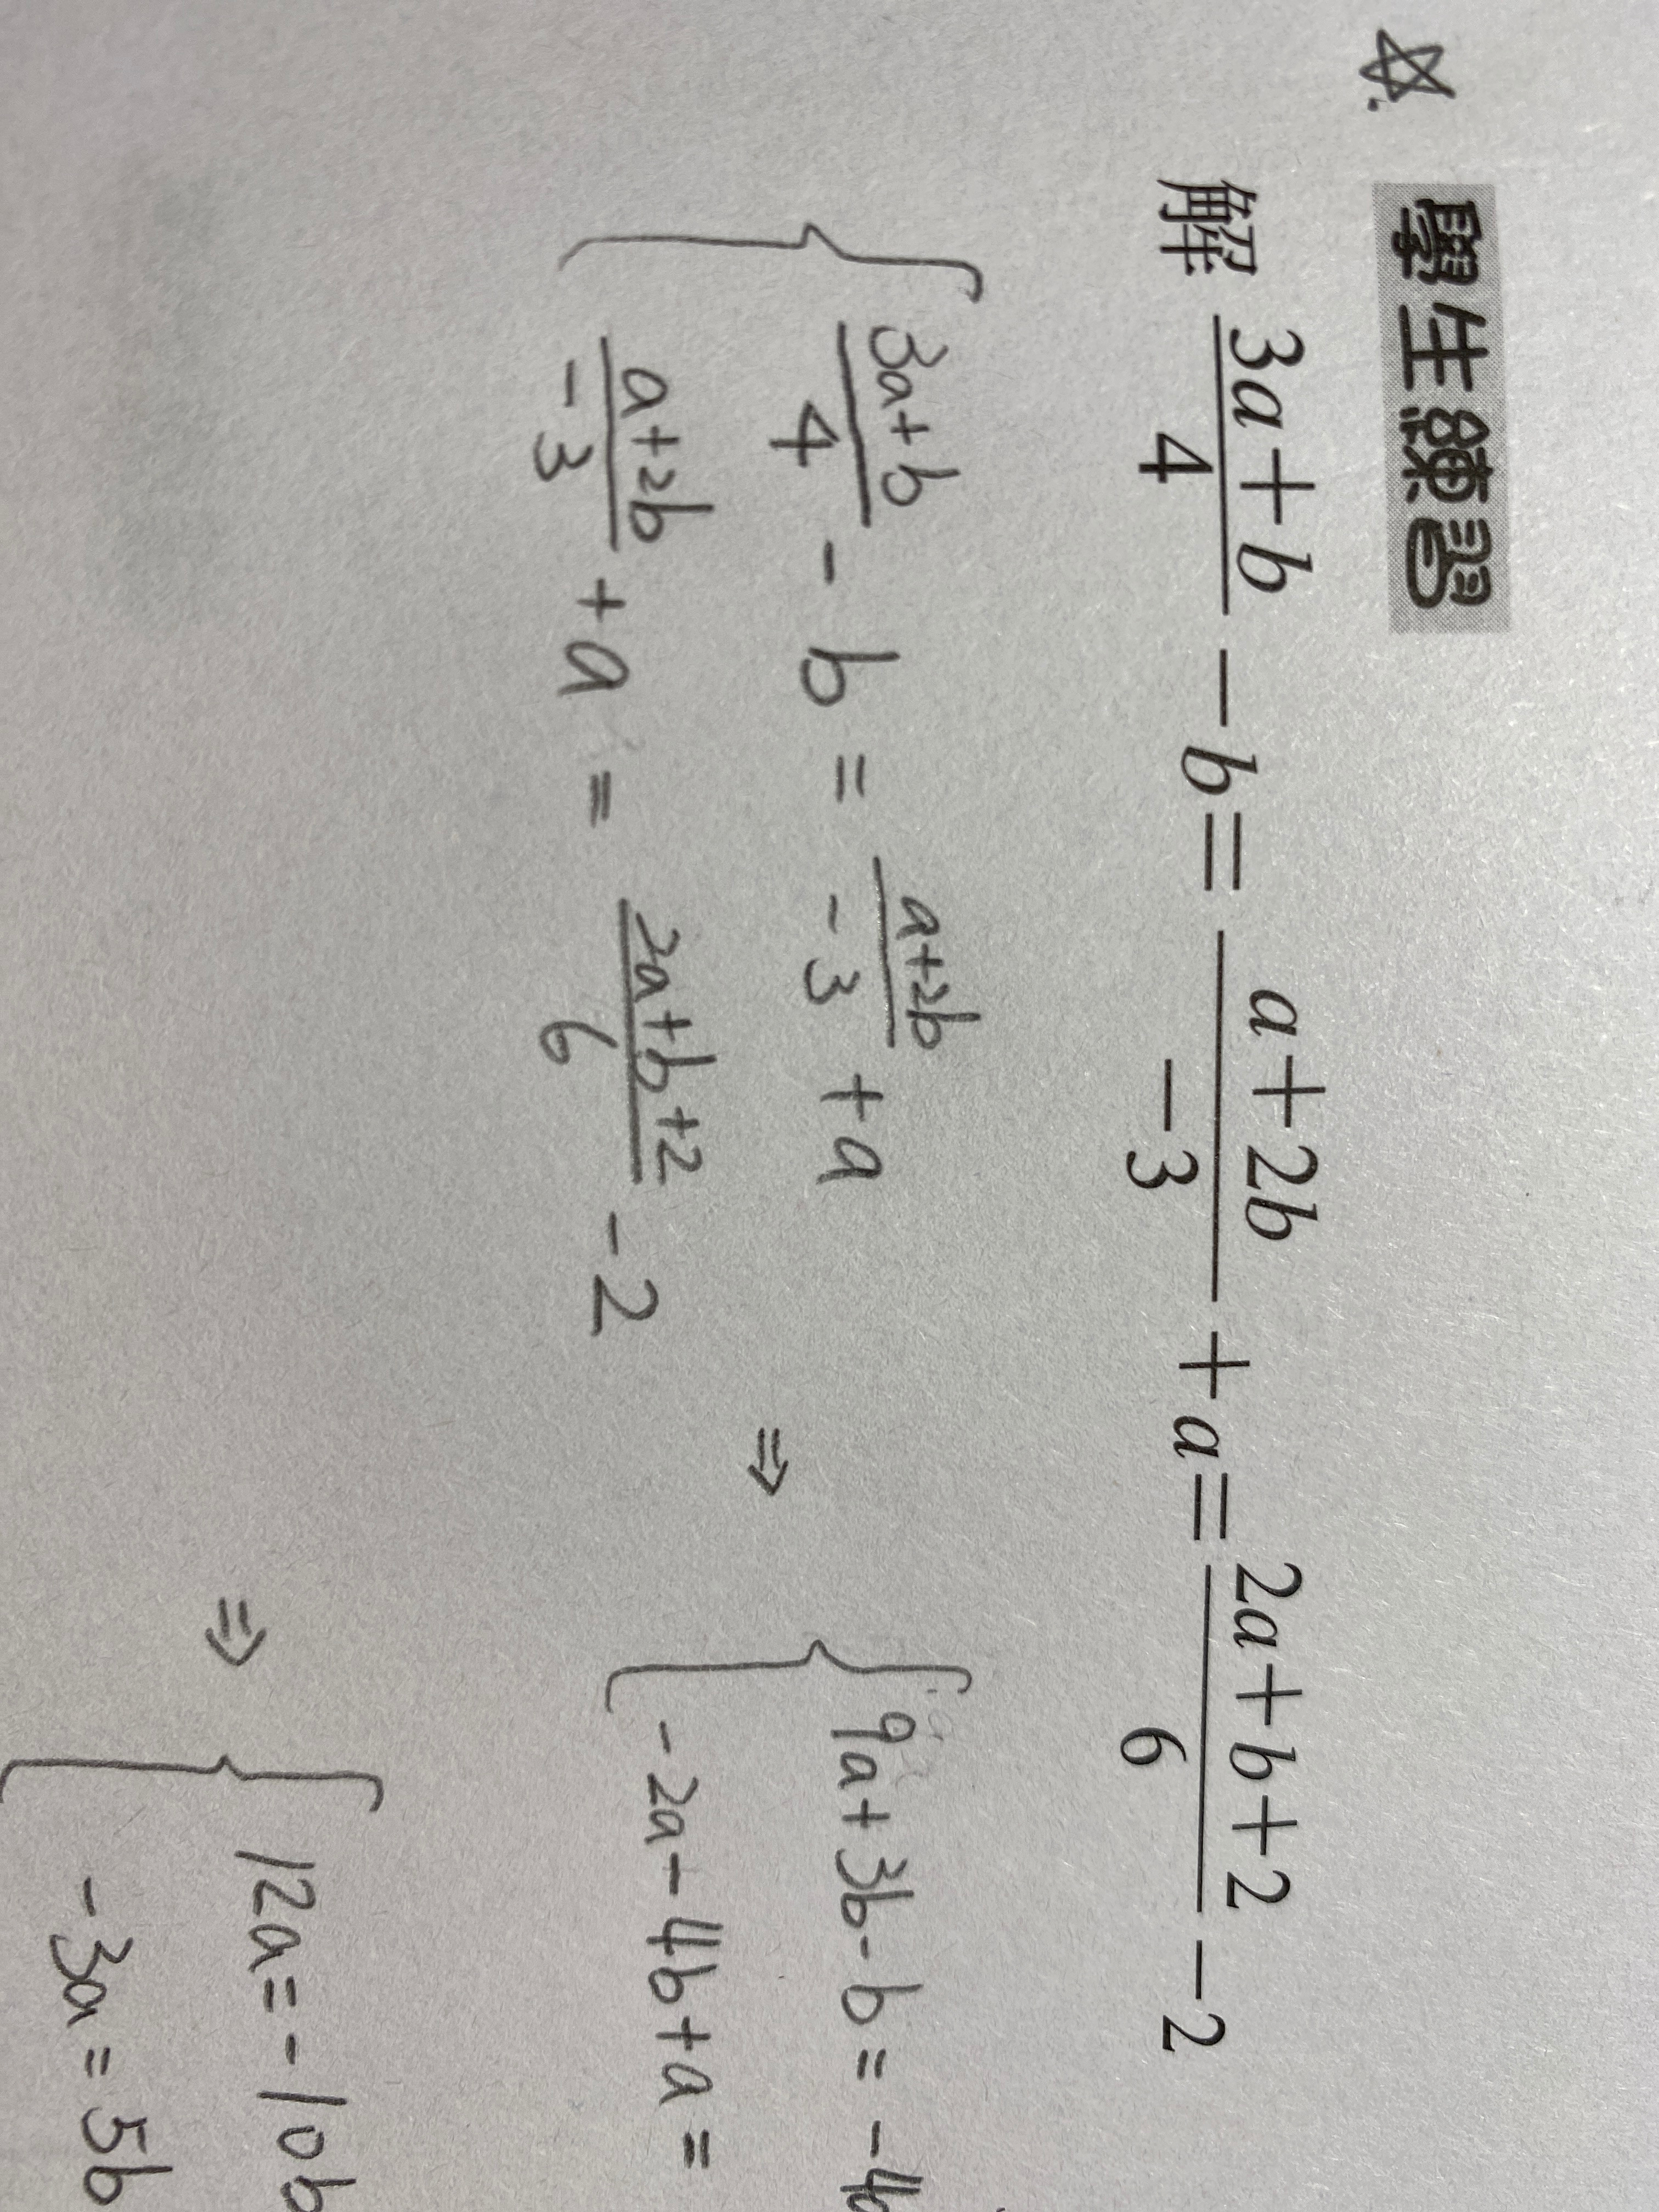 ☆.
學生練習
解 (3a+b)/4 − b = (a+2b)/(−3) + a = (2a+b+2)/6 − 2
{ (3a+b)/4 - b = (a+2b)/(-3) + a
(a+2b)/(-3) + a = (2a+b+2)/6 - 2
⇒ { 9a+3b-b = -4a
-2a-4b+a =
⇒ { 12a = -10b
-3a = 5b